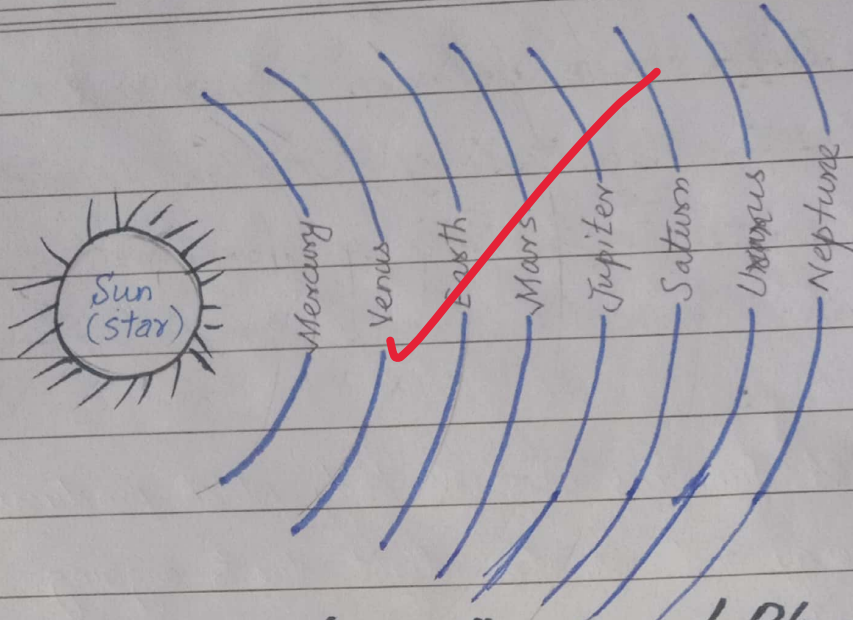 Sun
(star)
Mercury
Venus
Earth
Mars
Jupiter
Saturn
Uranus
Neptune